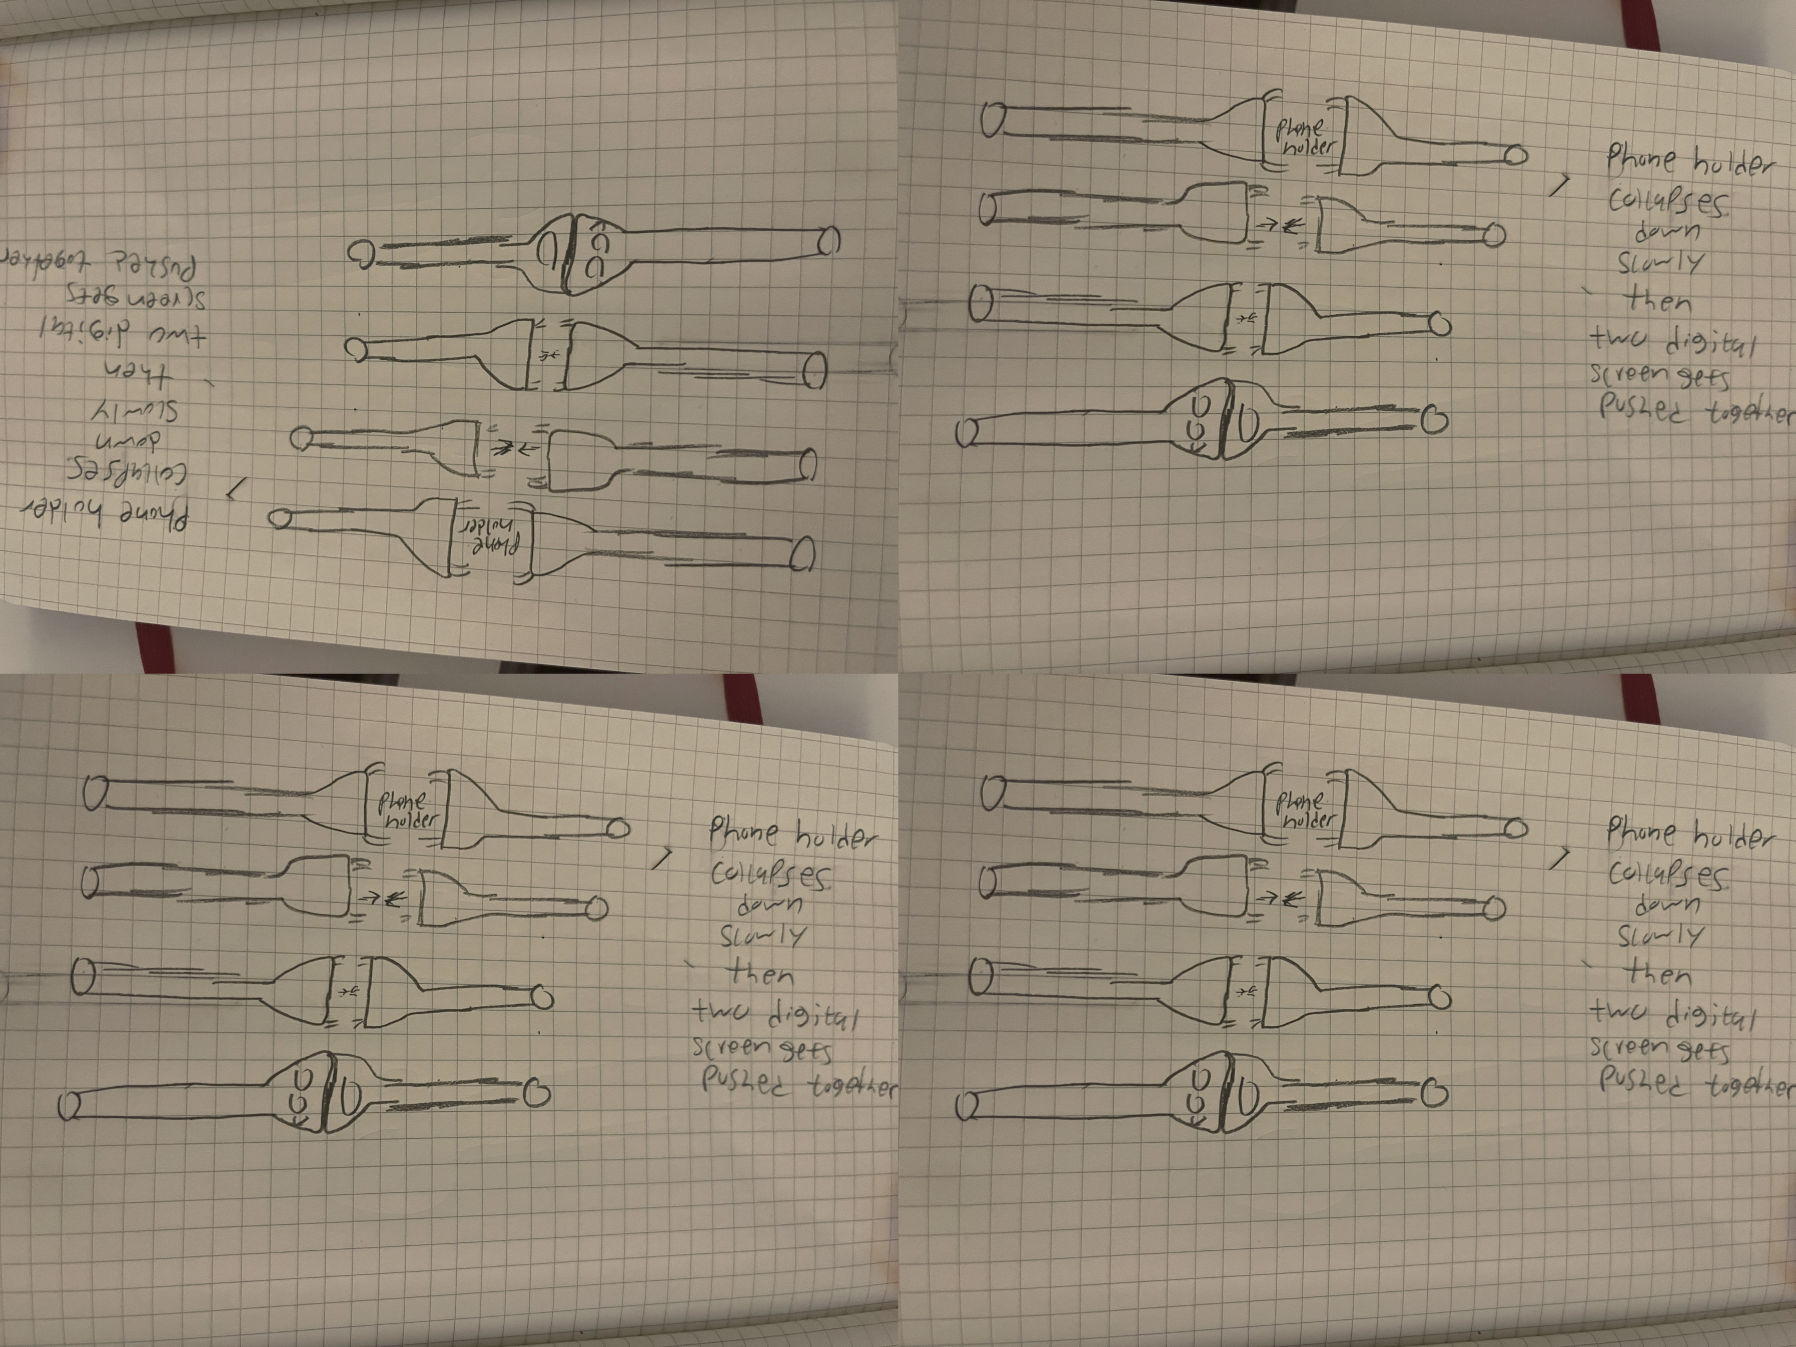 Phone holder
collapses
down
slowly
then
two digital
screen gets
pushed together
phone
holder
phone
holder
Phone holder
collapses
down
slowly
then
two digital
screen gets
pushed together
phone
holder
Phone holder
collapses
down
slowly
then
two digital
screen gets
pushed together
phone
holder
Phone holder
collapses
down
slowly
then
two digital
screen gets
pushed together